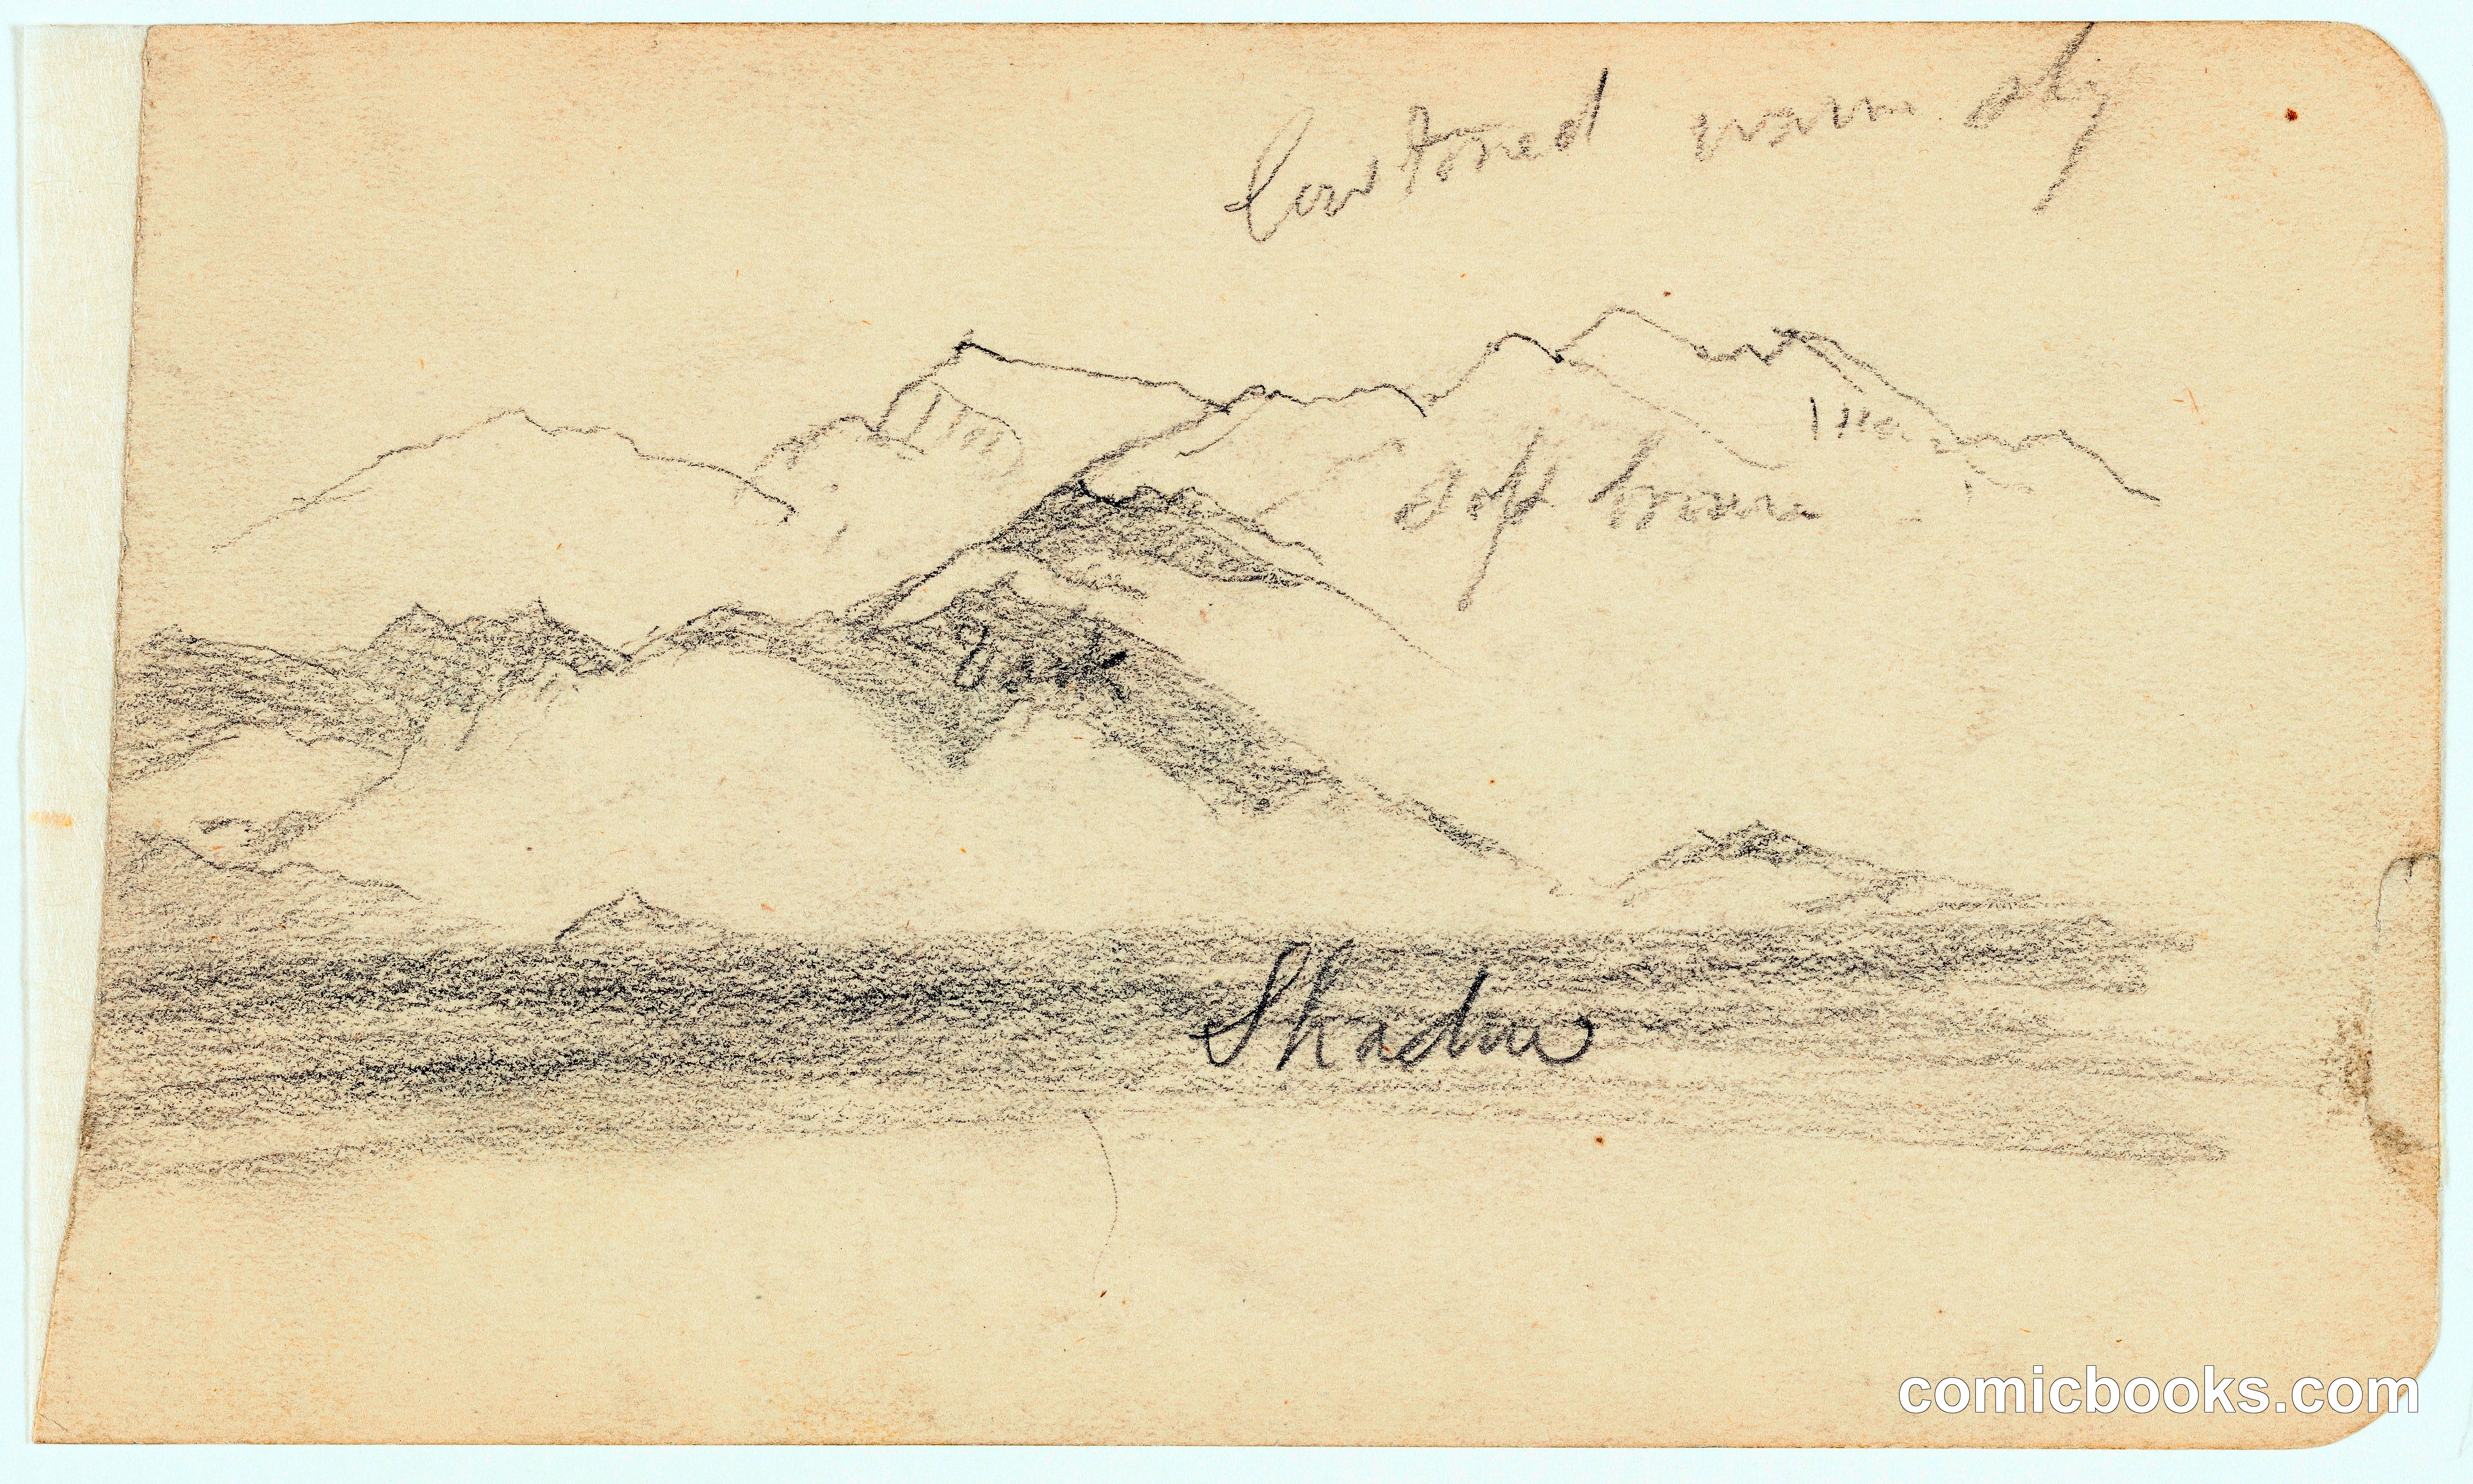 low toned warm sky
soft brown
Dark
Shadow
comicbooks.com